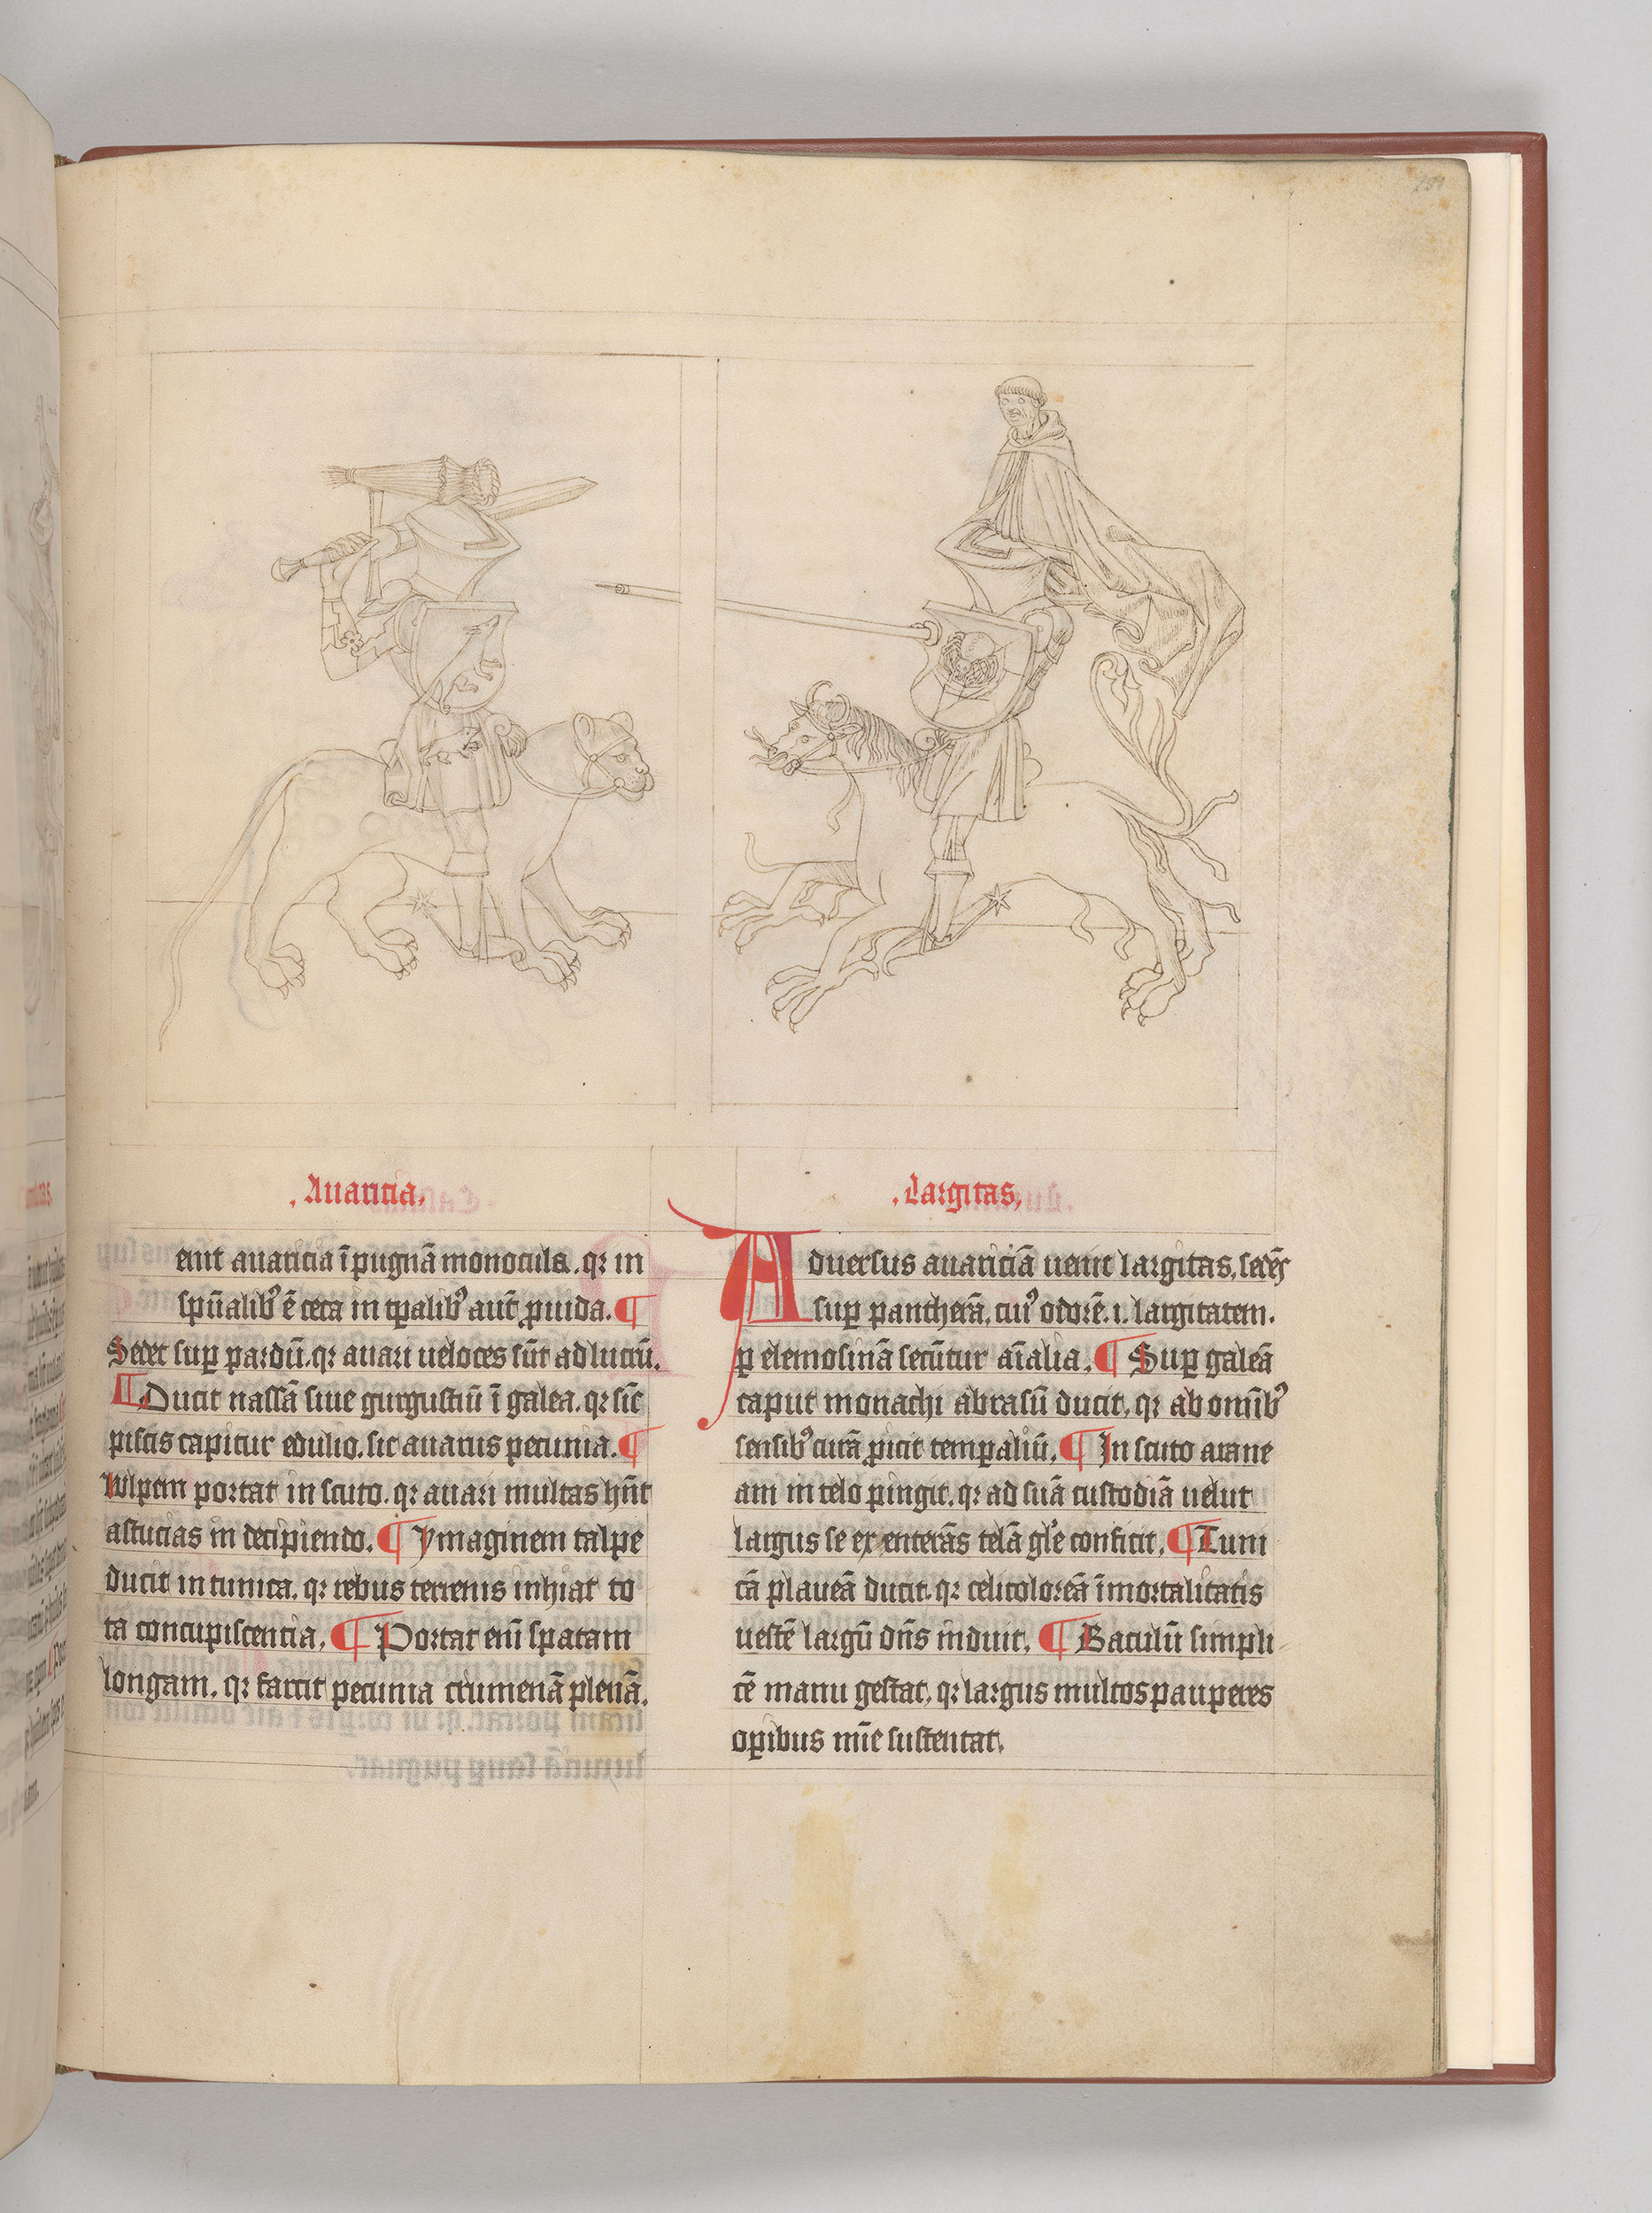 .Auaricia.
enit auaricia ī pugnā monocula. qꝛ in
spūalibꝰ ē ceca in tꝑalibꝰ aut̄ ꝓuida. ¶
Sedet suꝑ pardū. qꝛ auari ueloces sūt ad lucrū.
¶ Ducit nassā siue gurgustiū ī galea. qꝛ sic̄
piscis capitur edulio. sic auarus pecunia. ¶
Wlpem portat in scuto. qꝛ auari multas hn̄t
astucias in decipiendo. ¶ Ymaginem talpe
ducit in tunica. qꝛ rebus terrenis inhiat to
ta concupiscencia. ¶ Portat eni̅ spatam
longam. qꝛ farcit pecunia crumenā plenā.
.Largitas.
Aduersus auariciā uenit largitas. sedēs
suꝑ pantherā. cuiꝰ odorē .i. largitatem.
ꝑ elemosinā secūtur aīalia. ¶ Suꝑ galeā
caput monachi abrasū ducit. qꝛ ab omībꝰ
sensibꝰ curā ꝓicit temꝑaliū. ¶ In scuto arane
am in telo pingit. qꝛ ad suā custodiā uelut
largus se ex enterās telā gl'e conficit. ¶ Tuni
cā plaueā ducit. qꝛ celicoloreā īmortalitatis
uestē largū dn̄s induit. ¶ Baculū simpli
cē manu gestat. qꝛ largus multos pauperes
opibus mīe sustentat.